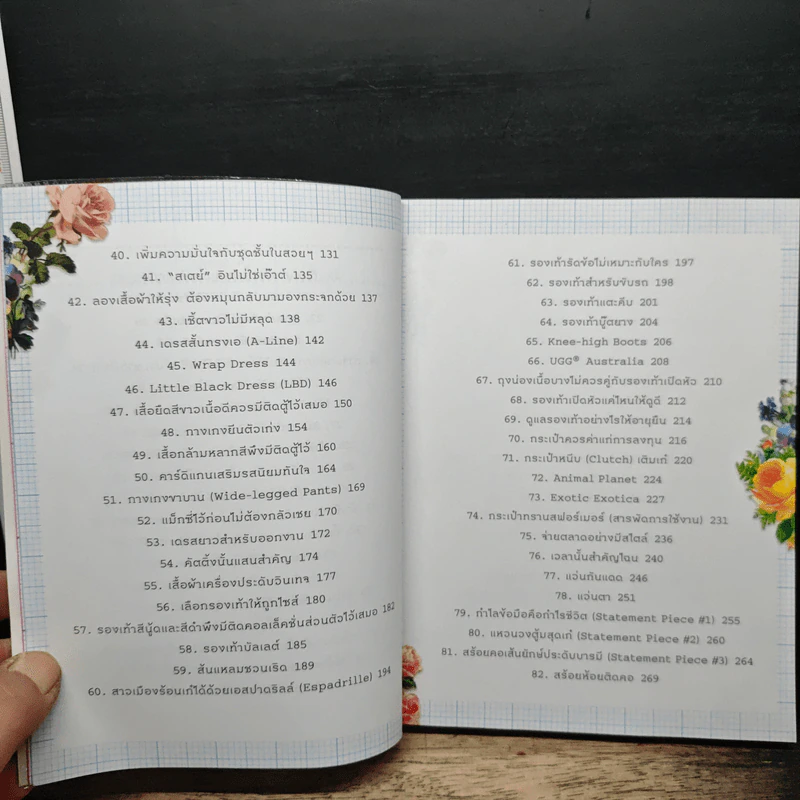 40. เพิ่มความมั่นใจกับชุดชั้นในสวยๆ 131
41. “สเตย์” อินไม่ใช่เอ๊าต์ 135
42. ลองเสื้อผ้าให้รุ่ง ต้องหมุนกลับมามองกระจกด้วย 137
43. เชิ้ตขาวไม่มีหลุด 138
44. เดรสสั้นทรงเอ (A-Line) 142
45. Wrap Dress 144
46. Little Black Dress (LBD) 146
47. เสื้อยืดสีขาวเนื้อดีควรมีติดตู้ไว้เสมอ 150
48. กางเกงยีนตัวเก่ง 154
49. เสื้อกล้ามหลากสีพึงมีติดตู้ไว้ 160
50. คาร์ดิแกนเสริมรสนิยมทันใจ 164
51. กางเกงขาบาน (Wide-legged Pants) 169
52. แม็กซี่ไว้ก่อนไม่ต้องกลัวเชย 170
53. เดรสยาวสำหรับออกงาน 172
54. คัตติ้งนั้นแสนสำคัญ 174
55. เสื้อผ้าเครื่องประดับวินเทจ 177
56. เลือกรองเท้าให้ถูกไซส์ 180
57. รองเท้าสีนู้ดและสีดำพึงมีติดคอลเล็คชั่นส่วนตัวไว้เสมอ 182
58. รองเท้าบัลเลต์ 185
59. ส้นแหลมชวนเริด 189
60. สาวเมืองร้อนเก๋ได้ด้วยเอสปาดริลล์ (Espadrille) 194
61. รองเท้ารัดข้อไม่เหมาะกับใคร 197
62. รองเท้าสำหรับขับรถ 198
63. รองเท้าแตะคีบ 201
64. รองเท้าบู๊ตยาง 204
65. Knee-high Boots 206
66. UGG® Australia 208
67. ถุงน่องเนื้อบางไม่ควรคู่กับรองเท้าเปิดหัว 210
68. รองเท้าเปิดหัวแค่ไหนให้ดูดี 212
69. ดูแลรองเท้าอย่างไรให้อายุยืน 214
70. กระเป๋าควรค่าแก่การลงทุน 216
71. กระเป๋าหนีบ (Clutch) เติมเก๋ 220
72. Animal Planet 224
73. Exotic Exotica 227
74. กระเป๋าทรานสฟอร์เมอร์ (สารพัดการใช้งาน) 231
75. จ่ายตลาดอย่างมีสไตล์ 236
76. เวลานั้นสำคัญไฉน 240
77. แว่นกันแดด 246
78. แว่นตา 251
79. กำไลข้อมือคือกำไรชีวิต (Statement Piece #1) 255
80. แหวนวงตู้มสุดเก๋ (Statement Piece #2) 260
81. สร้อยคอเส้นยักษ์ประดับบารมี (Statement Piece #3) 264
82. สร้อยห้อยติดคอ 269